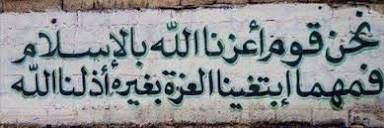 نحن قوم أعزنا الله بالإسلام
فمهما إبتغينا العزة بغيره أذلنا الله